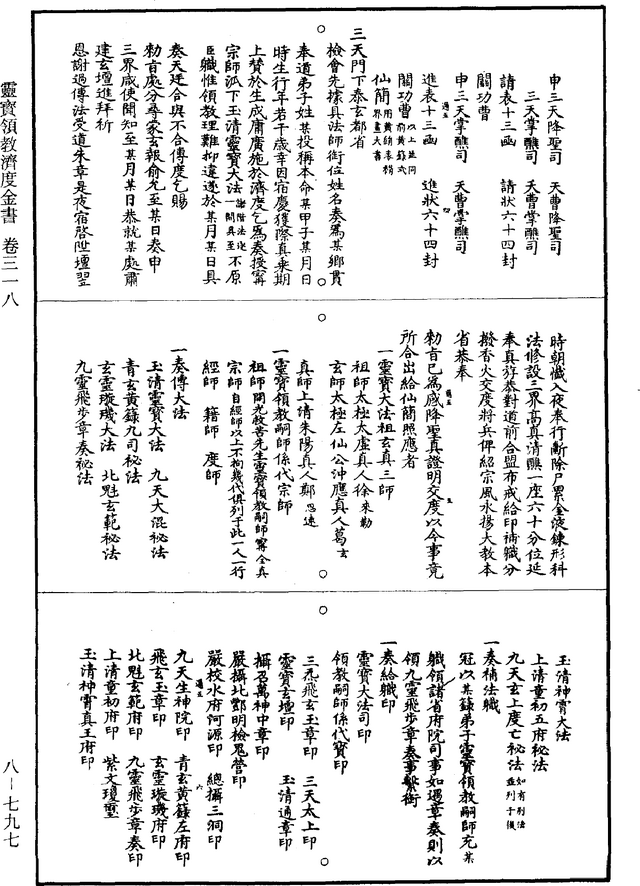 靈寶領教濟度金書 卷三一八
八–七九七
申三天降聖司 天曹降聖司
三天掌醮司 天曹掌醮司
請表十三函 請狀六十四封
閣功曹
申三天掌醮司 天曹掌醮司
進表十三函 進狀六十四封
閣功曹以上並同前黃籙式
仙簡用黃絹表褙界畫大書
三天門下泰玄都省
檢會先據具法師銜位姓名奏為某鄉貫
奉道弟子姓某投稱本命某甲子某月日
時生行年若干歲幸因宿慶獲際真乘期
上贊於生成庸廣施於濟度乞為奏授甯
宗師派下玉清靈寶大法謝階法迄一開具至不原
臣職惟領教理難抑違遂於某月某日具
奏天廷合與不合傳度乞賜
勑旨處分尋蒙玄報俞允至某日奏申
三界咸使聞知至某月某日恭就某處肅
建玄壇進拜祈
恩謝過傳法受道朱章是夜宿啓陞壇翌
時朝懺入夜奉行斷除尸累金液鍊形科
法修設三界高真清醮一座六十分位延
奉真斿恭對道前合盟布戒給印補職分
撥香火交度將兵俾紹宗風永揚大教本
省恭奉
勑旨已為感降聖真證明交度以今事竟
所合出給仙簡照應者
一靈寶大法祖玄真三師
祖師太極太虛真人徐來勒
玄師太極左仙公沖應真人葛玄
真師上清朱陽真人鄭思遠
一靈寶領教嗣師係代宗師
祖師開光救苦先生靈寶領教嗣師甯全真
宗師自經師以上不拘幾代俱列于此一人一行
經師 籍師 度師
一奏傳大法
玉清靈寶大法 九天大混秘法
青玄黃籙九司秘法
玄靈璇璣大法 北魁玄範秘法
九靈飛步章奏秘法
玉清神霄大法
上清童初五府秘法
九天玄上度亡秘法如有別法並列于後
一奏補法職
冠以某籙弟子靈寶領教嗣師充某
職領諸省府院司事如遇章奏則以
領九靈飛步章奏事繫銜
一奏給職印
靈寶大法司印
領教嗣師係代寶印
三炁飛玄玉章印 三天太上印
靈寶玄壇印 玉清通章印
攝召萬神中章印
嚴攝北酆明檢鬼營印
嚴校水府河源印 總攝三洞印
九天生神院印 青玄黃籙左府印
飛玄玉章印 玄靈璇璣府印
北魁玄範府印 九靈飛步章奏印
上清童初府印 紫文瓊璽
玉清神霄真王府印